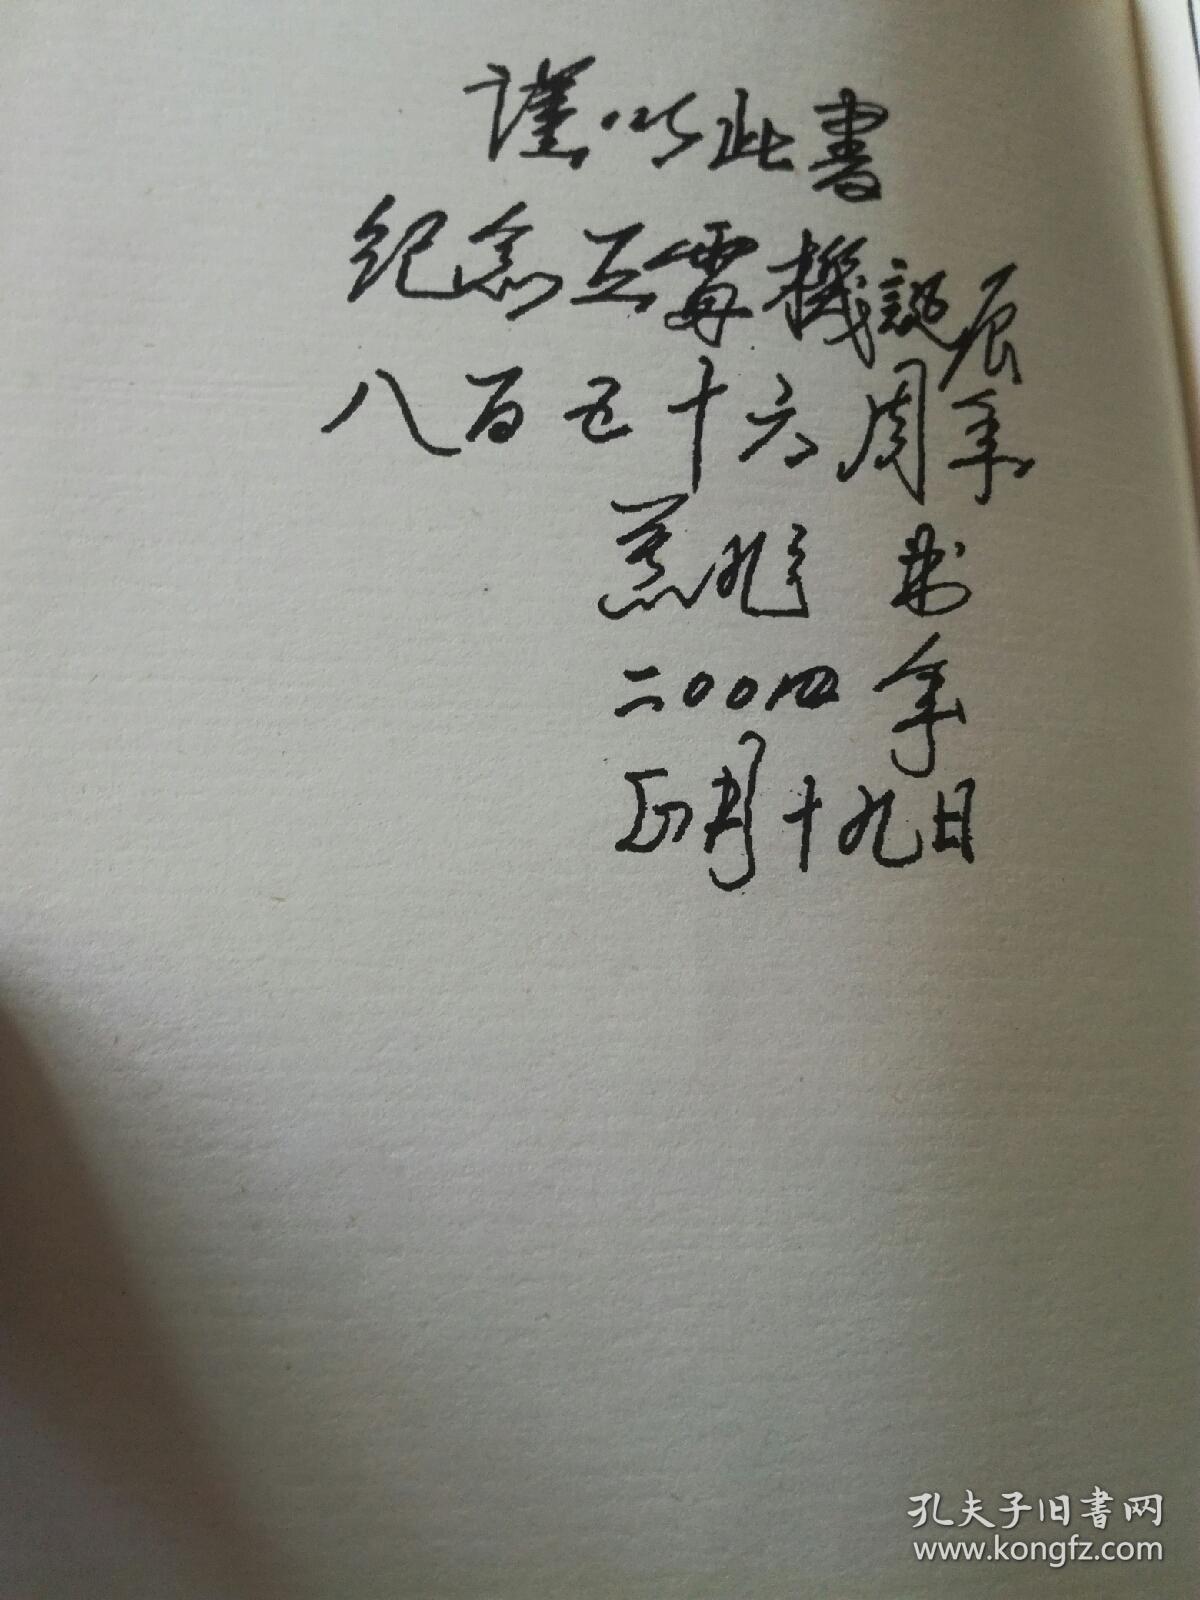 謹以此書
纪念王霄機誕辰
八百五十六周年
二〇〇四年
正月十九日
孔夫子旧书网
www.kongfz.com